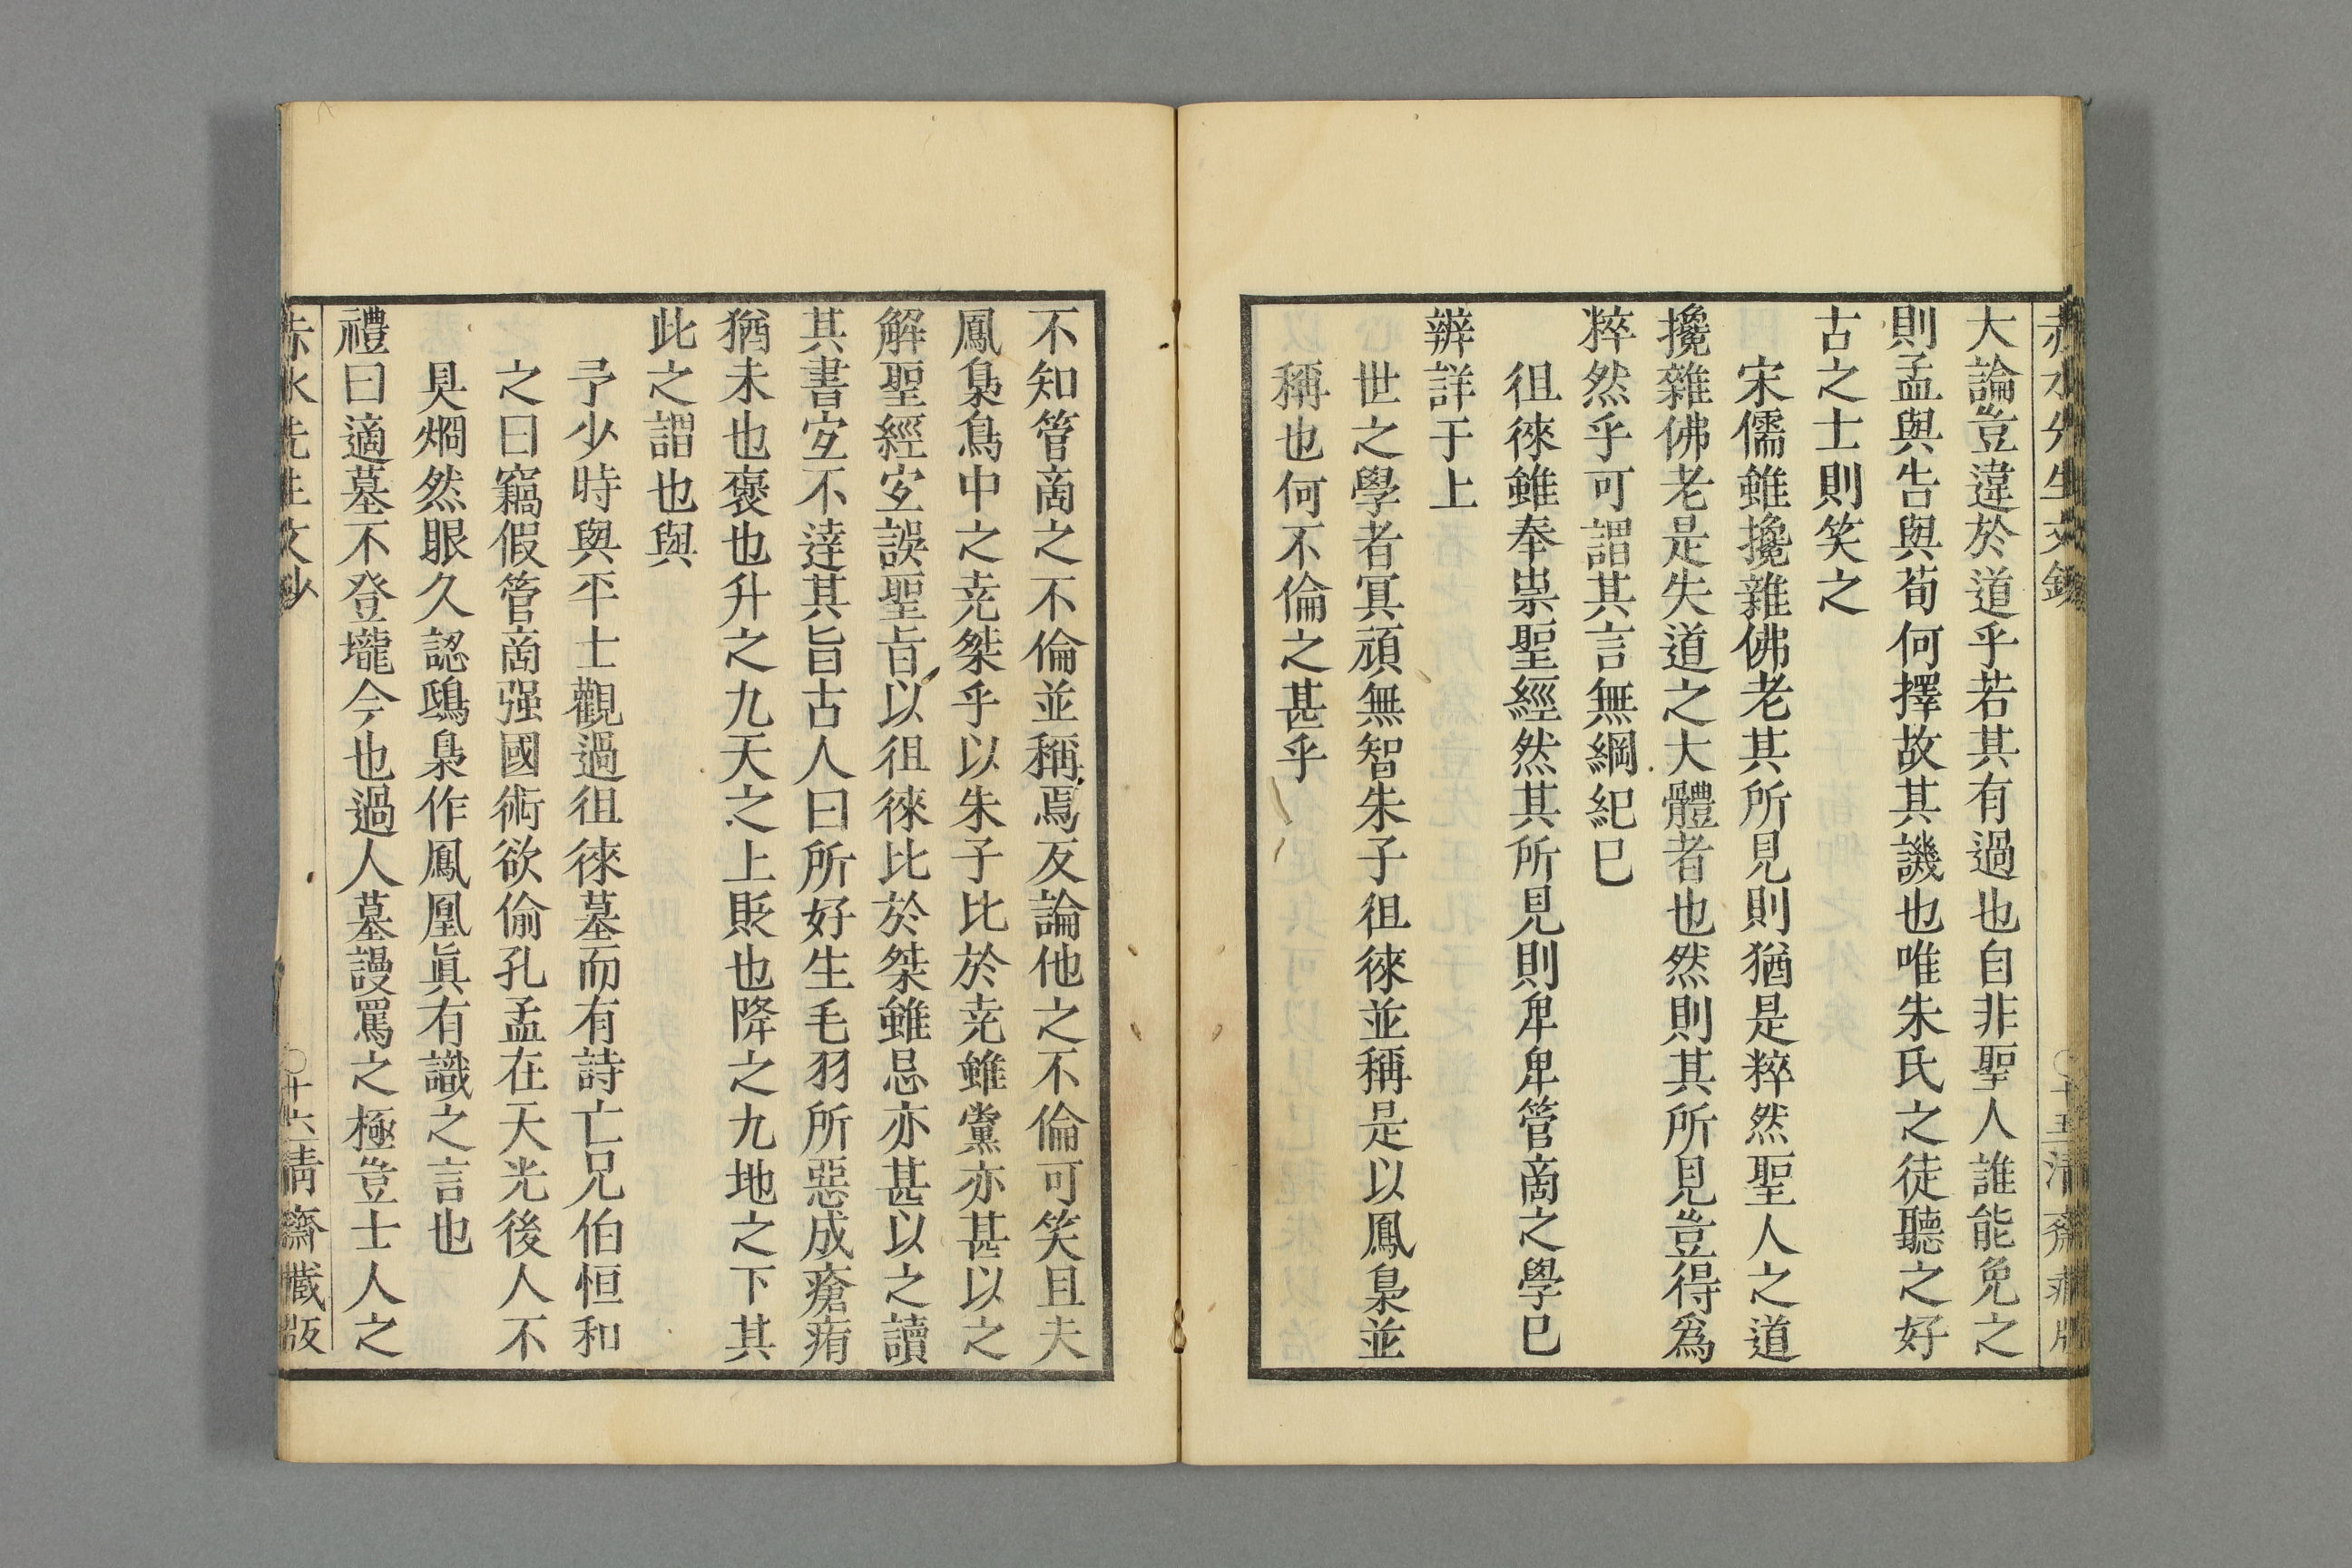 大論豈違於道乎若其有過也自非聖人誰能免之
則孟與告與荀何擇故其譏也唯朱氏之徒聽之好
古之士則笑之
宋儒雖攙雜佛老其所見則猶是粹然聖人之道
攙雜佛老是失道之大體者也然則其所見豈得爲
粹然乎可謂其言無綱紀已
徂徠雖奉崇聖經然其所見則卑卑管商之學已
辨詳于上
世之學者冥頑無智朱子徂徠並稱是以鳳梟並
稱也何不倫之甚乎
不知管商之不倫並稱焉反論他之不倫可笑且夫
鳳梟鳥中之尭桀乎以朱子比於尭雖黨亦甚以之
解聖經定誤聖旨以徂徠比於桀雖忌亦甚以之讀
其書定不達其旨古人曰所好生毛羽所惡成瘡痏
猶未也褒也升之九天之上貶也降之九地之下其
此之謂也與
予少時與平士觀過徂徠墓而有詩亡兄伯恒和
之曰竊假管商强國術欲偷孔孟在天光後人不
具烱然眼久認鴟梟作鳳凰眞有識之言也
禮曰適墓不登壠今也過人墓謾罵之極豈士人之
赤水先生文鈔
〇十六清齋藏版